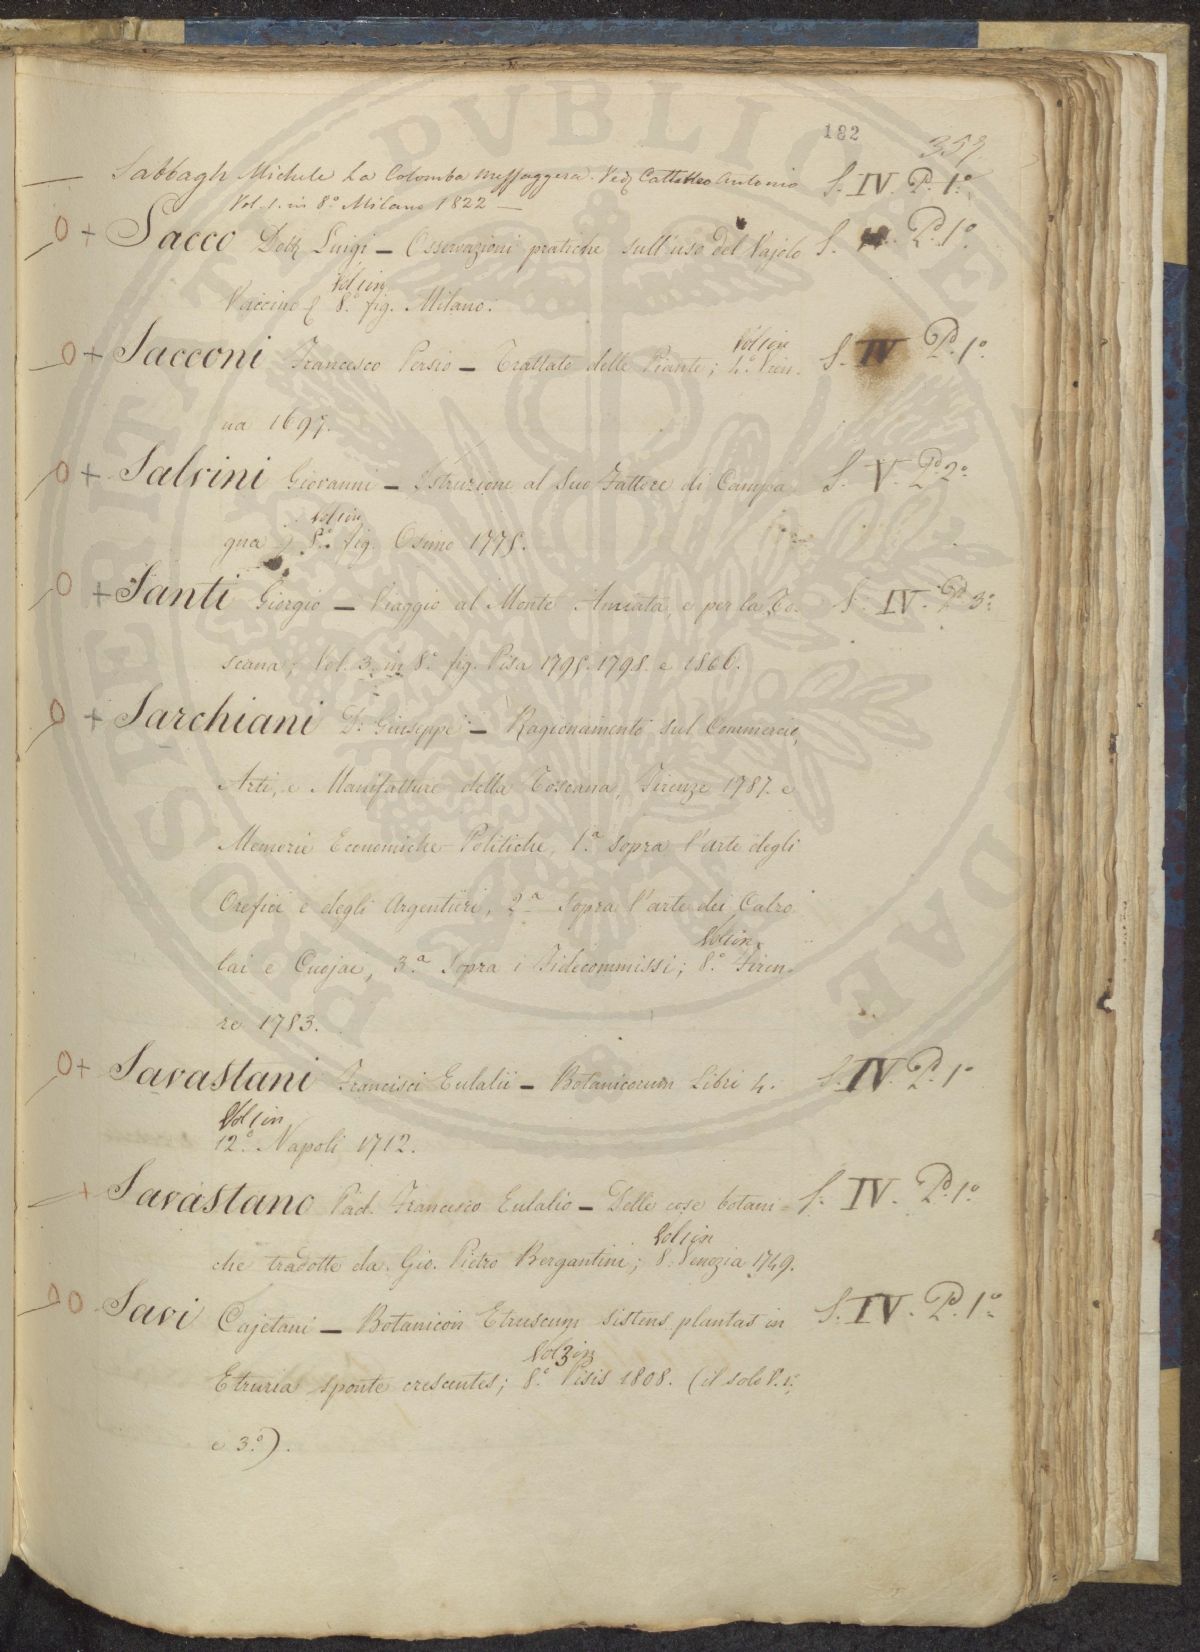 182
359
Sabbagh Michele La Colomba Messaggera. Ved. Cattaneo Antonio S. IV. P. 1.º
Vol. 1. in 8.º Milano 1822 —
O + Sacco Dott. Luigi — Osservazioni pratiche sull'uso del Vajolo S. P. 1.º
Vol 1 in
Vaccino 8.º fig. Milano.
Vol 1 in
O + Sacconi Francesco Persio — Trattato delle Piante; 4.º Vien- S. IV P. 1.º
na 1697.
O + Salvini Giovanni — Istruzione al Suo Fattore di Campa S. V. P. 2.º
Vol 1 in
gna; 8.º fig. Osimo 1775.
O + Santi Giorgio — Viaggio al Monte Amiata, e per la To- S. IV. P. 3.º
scana; Vol. 3. in 8.º fig. Pisa 1795. 1798. e 1806.
O + Sarchiani D. Giuseppe — Ragionamento sul Commercio,
Arti, e Manifatture della Toscana, Firenze 1781. e
Memorie Economiche-Politiche, 1.ª sopra l'arte degli
Orefici e degli Argentieri, 2.ª Sopra l'arte dei Calzo
Vol 1 in
lai e Cuojai, 3.ª Sopra i Fidecommissi; 8.º Firen-
ze 1783.
O + Savastani Francisci Eulalii — Botanicorum Libri 4. S. IV. P. 1.º
Vol 1 in
12.º Napoli 1712.
+ Savastano Pad. Francesco Eulalio — Delle cose botani= S. IV. P. 1.º
Vol 1 in
che tradotte da Gio. Pietro Bergantini; 8.º Venezia 1749.
O Savi Cajetani — Botanicon Etruscum sistens plantas in S. IV. P. 1.º
Vol 2 in
Etruria sponte crescentes; 8.º Pisis 1808. (il solo V. 1.º
e 3.º).
PVBLICAE
PROSPERITATI